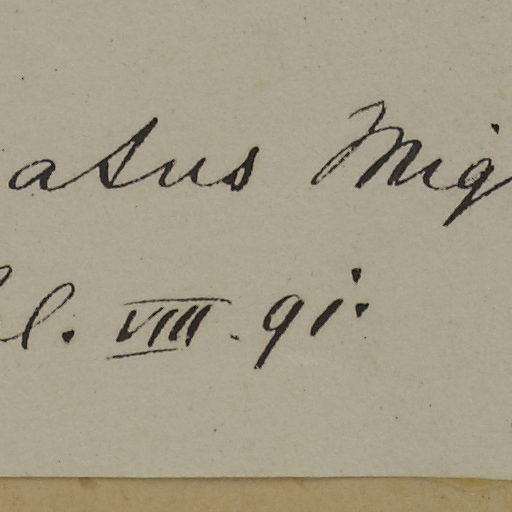 atus Mig
l. VIIII. 91.